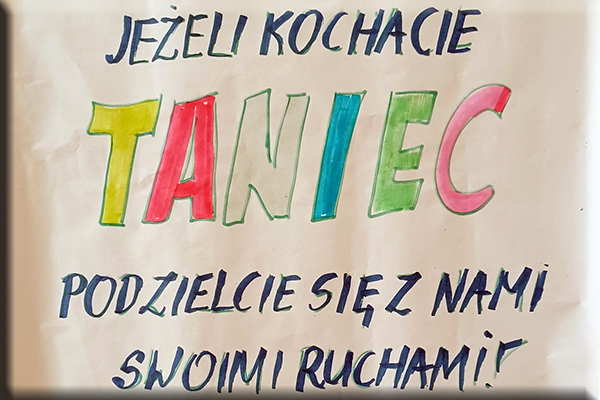 JEŻELI KOCHACIE
TANIEC
PODZIELCIE SIĘ Z NAMI
SWOIMI RUCHAMI!